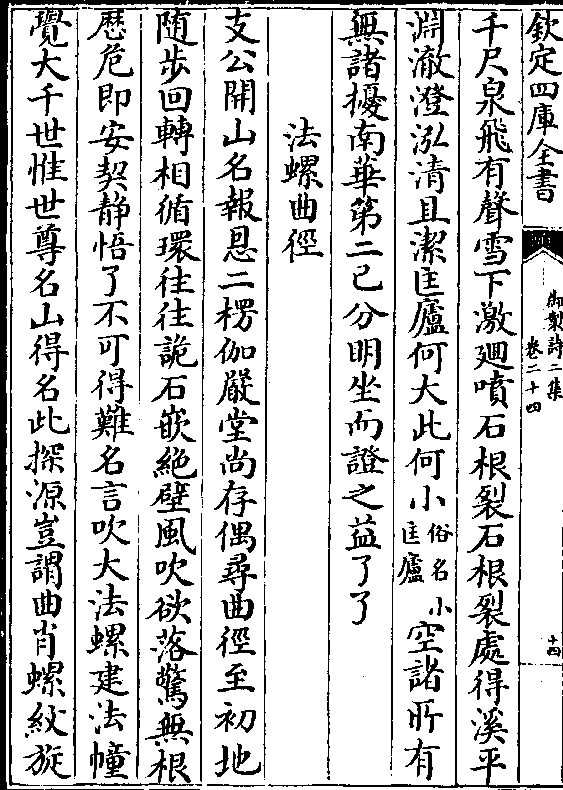 欽定四庫全書
御製詩二集
卷二十四
十四
千尺泉飛有聲雪下激廻噴石根裂石根裂處得溪平
淵澈澄泓清且潔匡廬何大此何小俗名小匡廬空諸所有
無諸擾南華第二已分明坐而證之益了了
法螺曲徑
支公開山名報恩二楞伽嚴堂尚存偶尋曲徑至初地
随步回轉相循環往往詭石嵌絶壁風吹欲落驚無根
歴危即安契静悟了不可得難名言吹大法螺建法幢
覺大千世惟世尊名山得名此探源豈謂曲肖螺紋旋